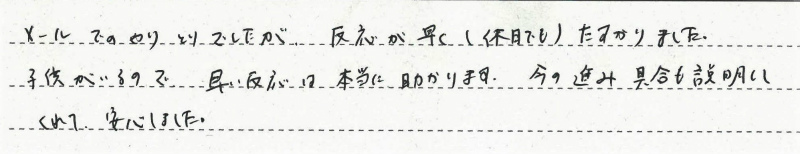 メールでのやりとりでしたが、反応が早く(休日でも)たすかりました。
子供がいるので 早い反応は本当に助かります。今の進み具合も説明し
くれて、安心しました。